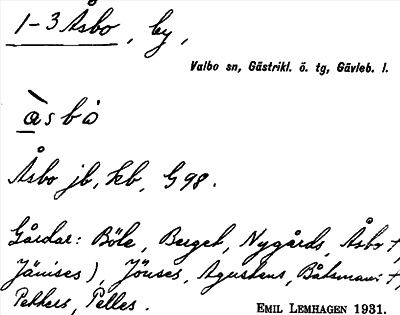 1-3 Åsbo, by,
Valbo sn, Gästrikl. ö. tg, Gävleb. l.
àsbò
Åsbo jb, kb, G98.
Gårdar: Böle, Berget, Nygårds, Åsbo +,
Jänises), Jönses, Agustens, Båtsmans +,
Pekkers, Pelles.
EMIL LEMHAGEN 1931.